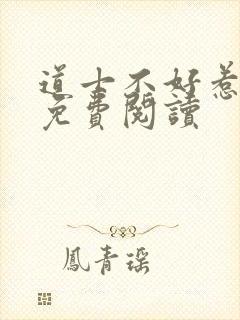 道士不好惹
免費閱讀
鳳青瑤